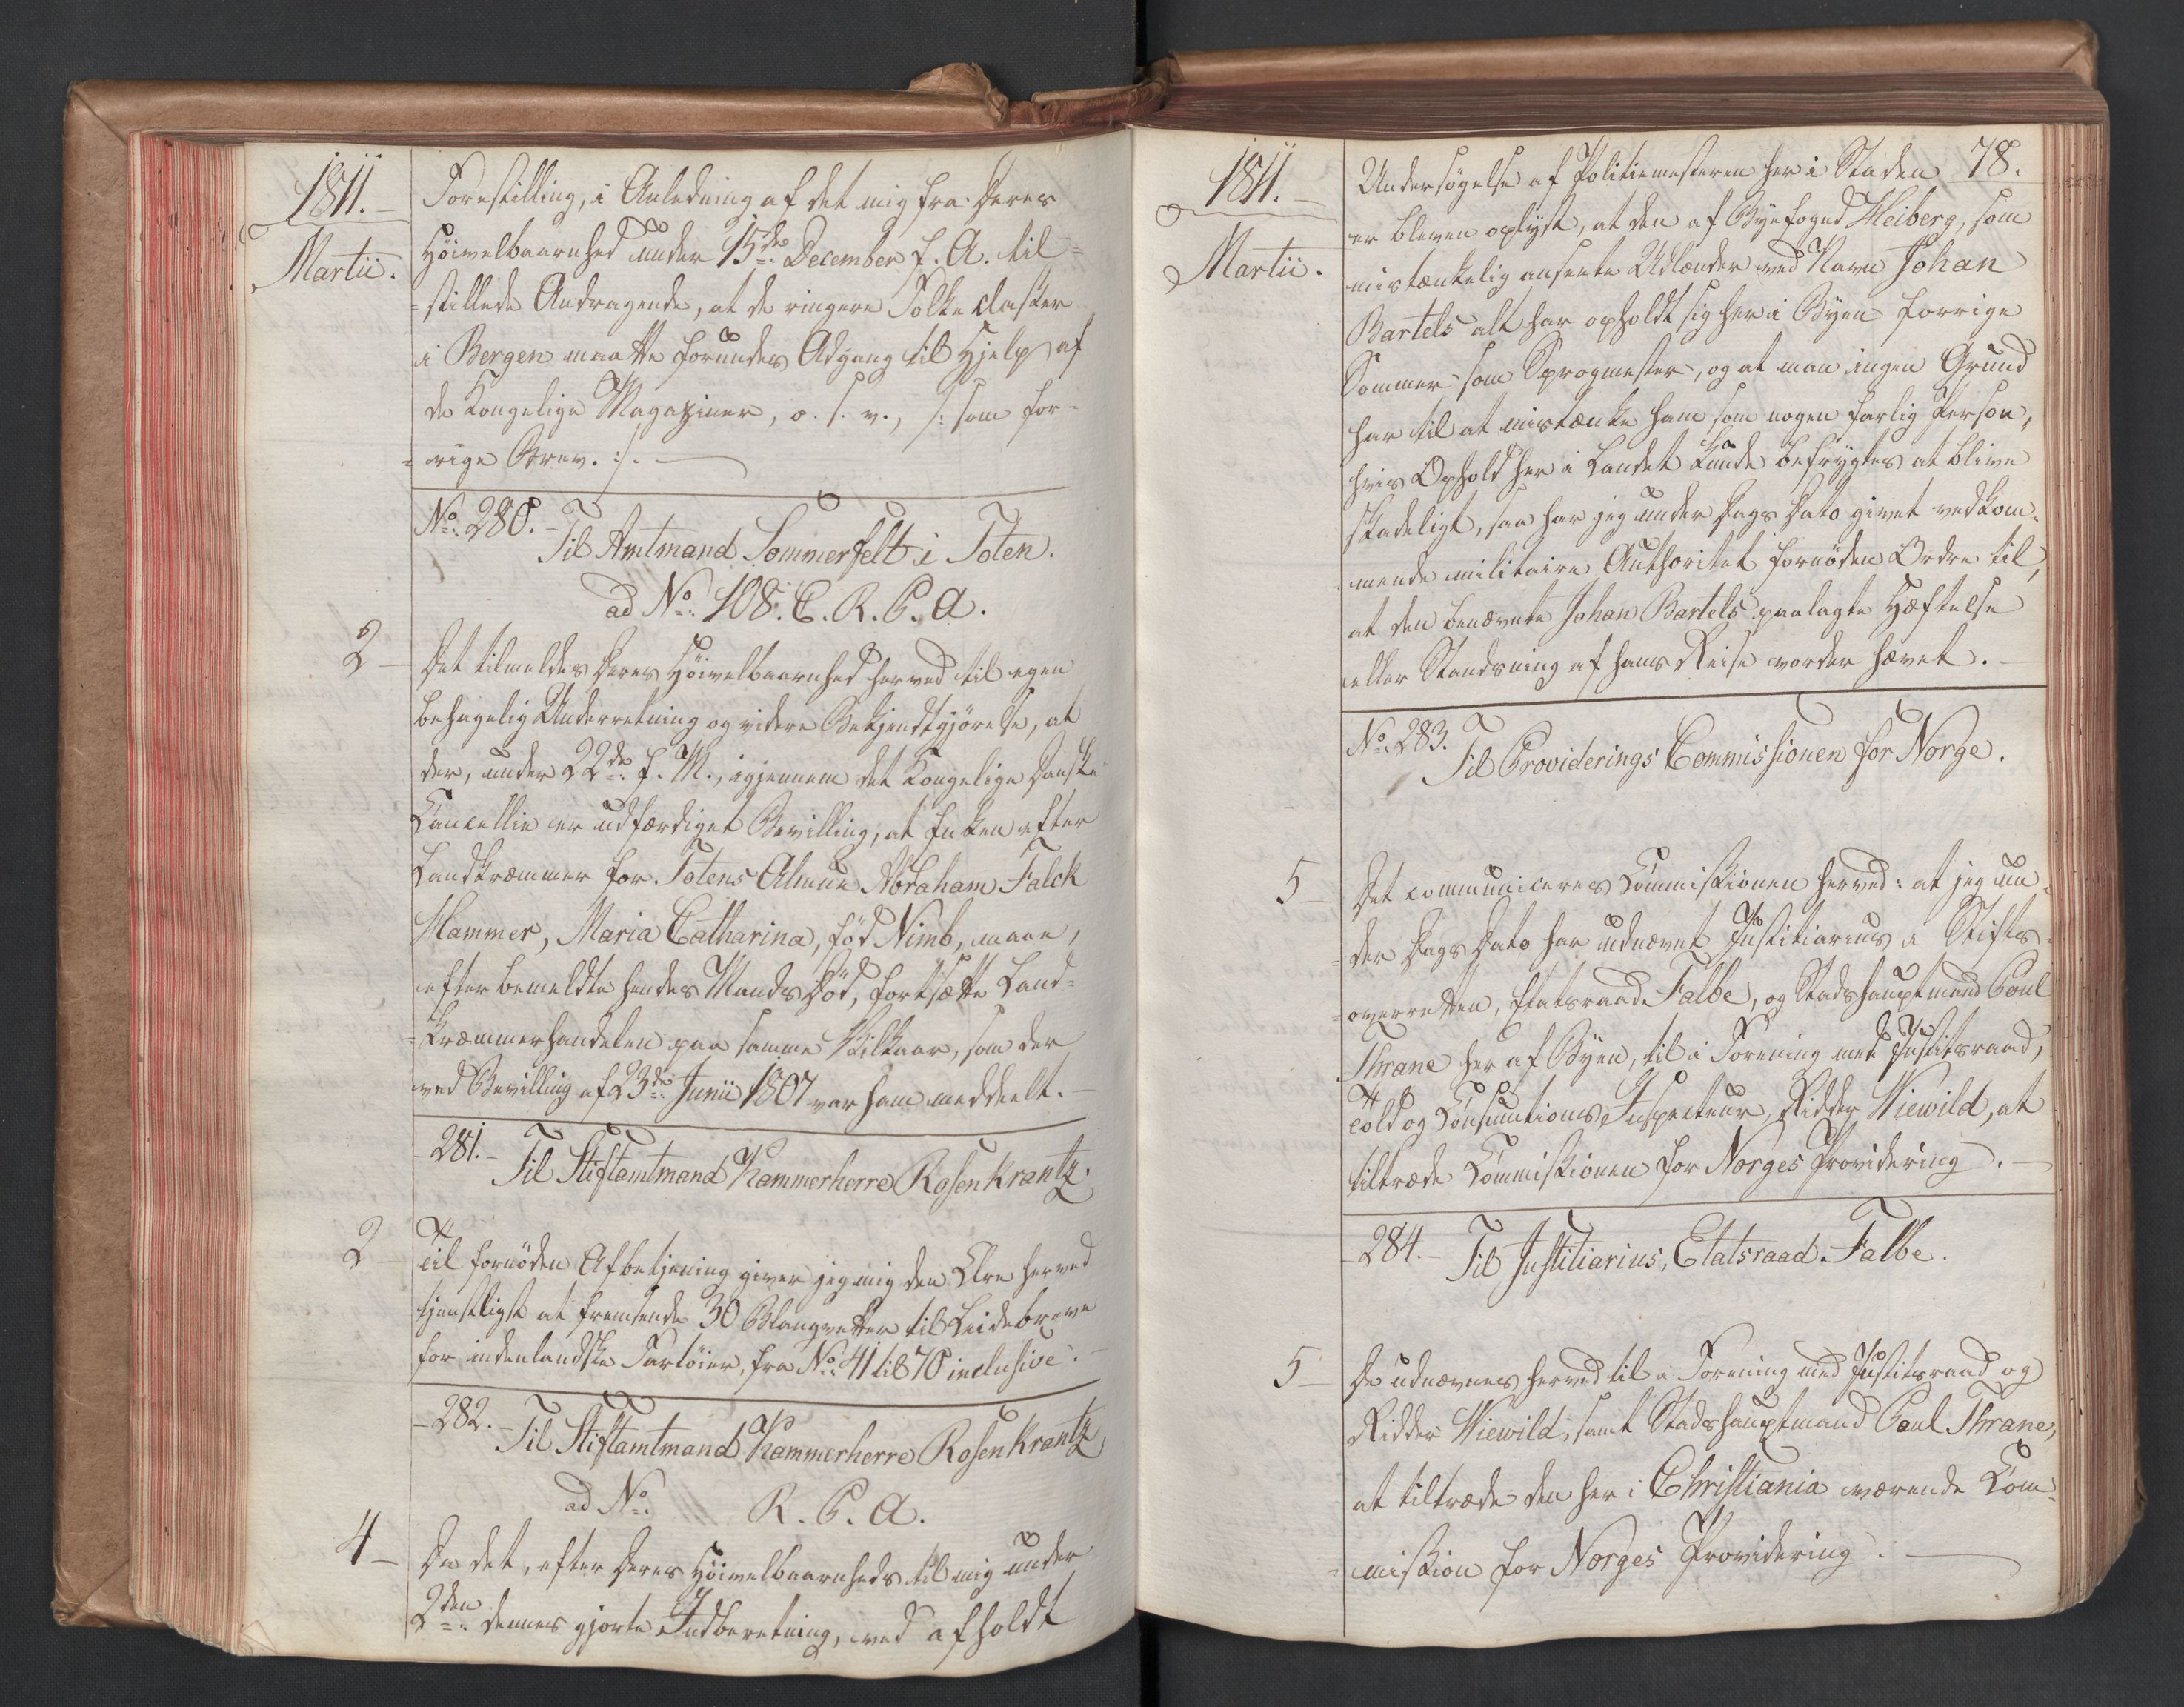 1811.
Martii.
Forestilling, i Anledning af det mig fra Deres
Høivelbaarnhed under 15de December f. A. til=
=stillede Andragende, at de ringere Folkeclasser
i Bergen maatte forundes Adgang til Hjelp af
de Kongelige Magaziner, o. s. v., /: som for=
=rige Brev. :/.
No. 280. Til Amtmand Sommerfelt i Toten.
ad No. 108. C. R. P. A.
2 Det tilmeldes Deres Høivelbaarnhed herved til egen
behagelig Underretning og videre Bekjendtgjørelse, at
der, under 22de f. M., igjennem det Kongelige Danske
Cancellie er udfærdiget Bevilling, at Enken efter
Landkræmmer for Totens Almue Abraham Falck
Hammer, Maria Catharina, fød Nimb, maae,
efter bemeldte hendes Mands Død, fortsætte Land=
=kræmmerhandelen paa samme Vilkaar, som der
ved Bevilling af 23de Junii 1807 var ham meddeelt.
281. Til Stiftamtmand Kammerherre Rosenkrantz.
2 Til fornøden Afbetjening giver jeg mig den Ære herved
tjenstligst at fremsende 30 Blanqvetter til Leidebreve
for indenlandske Fartøier, fra No. 41 til 70 inclusive.
282. Til Stiftamtmand Kammerherre Rosenkrantz
ad No. R. P. A.
4 Da det, efter Deres Høivelbaarnheds til mig under
2den dennes gjorte Indberetning, ved afholdt
1811.
Martii.
78.
Undersøgelse af Politiemesteren her i Staden
er bleven oplyst, at den af Byefoged Heiberg, som
mistænkelig ansete Udlænder ved Navn Johan
Bartels alt har opholdt sig her i Byen forrige
Sommer som Sprogmester, og at man ingen Grund
har til at mistænke ham som nogen farlig Person,
hvis Ophold her i Landet kunde befrygtes at blive
skadeligt, saa har jeg under Dags Dato givet vedkom=
mende militaire Authoritet fornøden Ordre til,
at den benævnte Johan Bartels paalagte Hæftelse
eller Standsning af hans Reise vorder hævet.
No. 283. Til Providerings Commissionen for Norge.
5 Det communiceres Commissionen herved: at jeg un=
=der Dags Dato har udnævnt Justitiarius i Stifts=
=overretten, Etatsraad Falbe, og Stadshauptmand Poul
Thrane her af Byen, til i Forening med Justitsraad,
Told og Consumtions Inspecteur, Ridder Wiewild, at
tiltræde Commissionen for Norges Providering.
284. Til Justitiarius, Etatsraad Falbe.
5 De udnævnes herved til i Forening med Justitsraad og
Ridder Wiewild, samt Stadshauptmand Paul Thrane,
at tiltræde den her i Christiania værende Com=
=mission for Norges Providering.